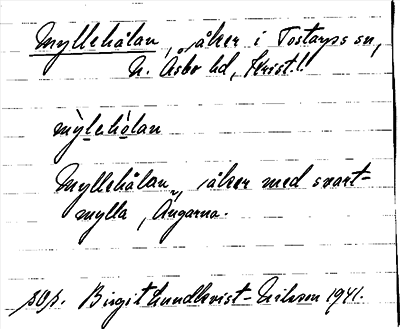 Myllehålan, åker i Tostarps sn,
N. Åsbo hd, Krist. l.
mỳlehòlan
Myllehålan, åker med svart-
mylla, Ängarna.
Birgit Lundkvist-Nilsson 1941.